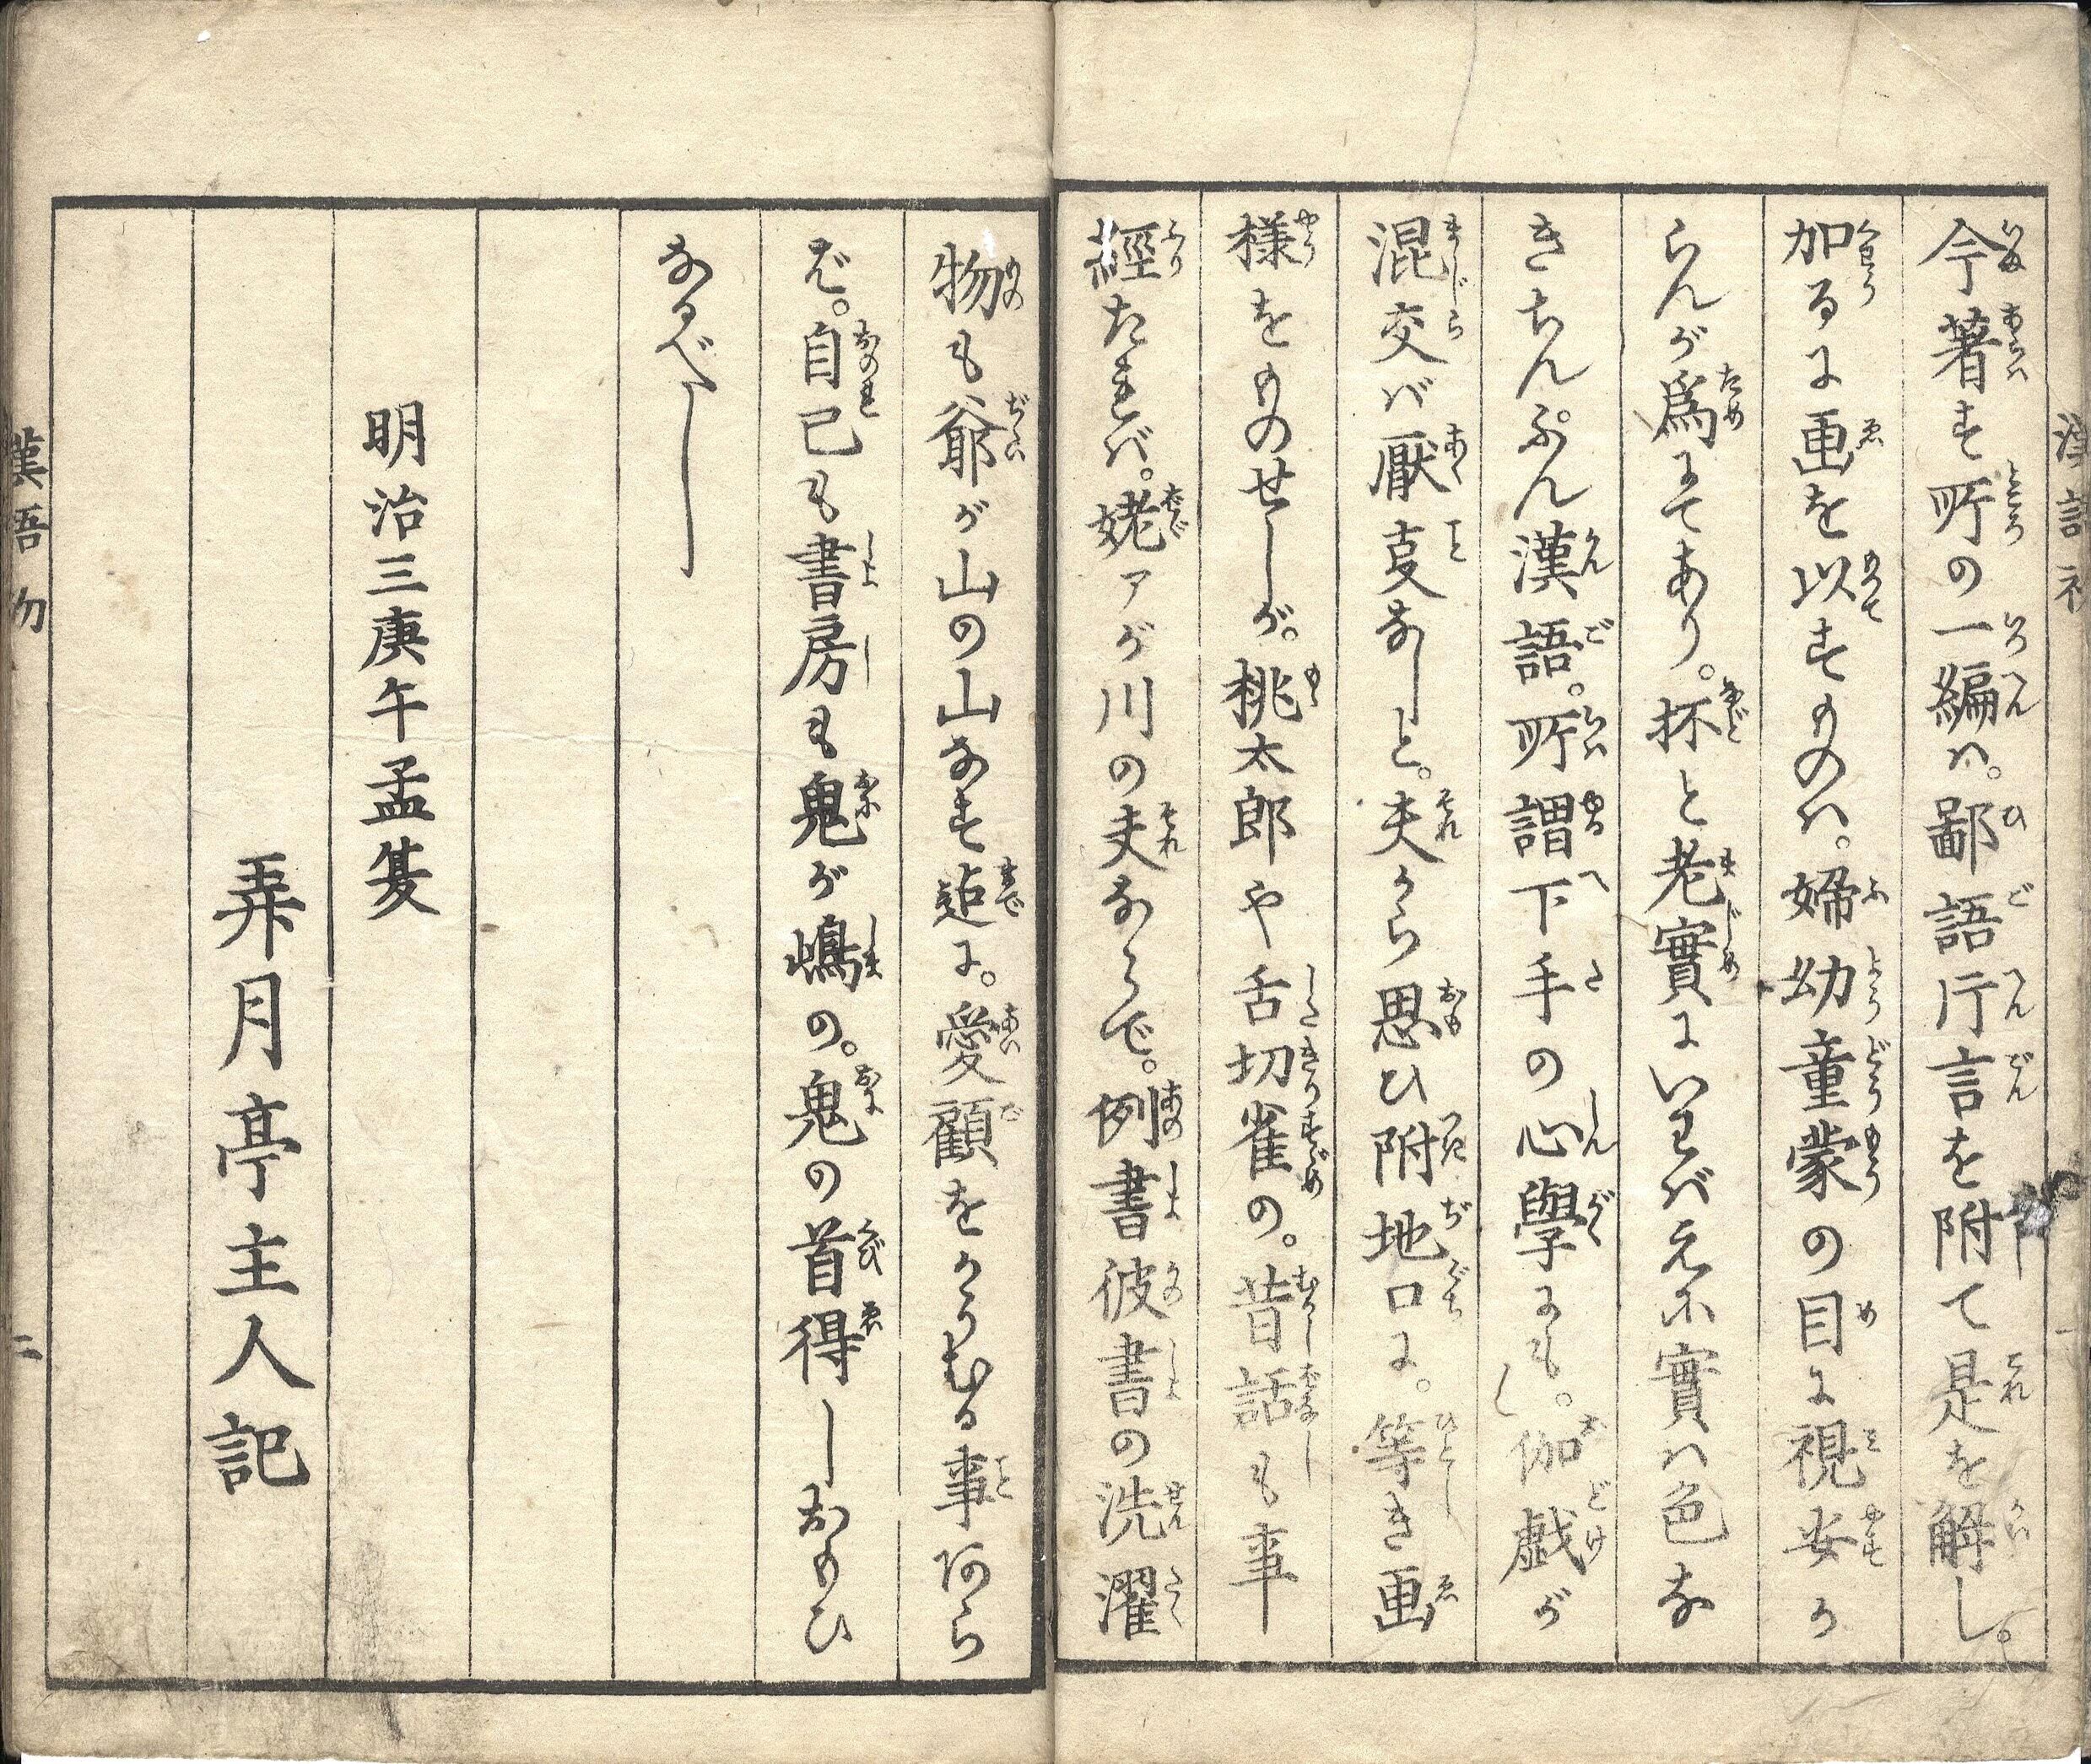 今著す所の一編ハ。鄙語片言を附て是を解し。
加るに画を以すものハ。婦幼童蒙の目に視安か
らんが為にてあり。抔と老實にいわばえに實は色な
きちんぷん漢語。所謂下手の心學にも。伽戯が
混交バ厭叓なしと。夫から思ひ附地口に。等き画
様をものせしが。桃太郎や舌切雀の。昔話も事
經たれバ。姥アが川の夫ならで。例書彼書の洗濯
物も爺が山の山なす迠に。愛顧をかうむる事阿ら
ば。自己も書房も鬼が嶋の。鬼の首得しおもひ
なるべし
明治三庚午孟夏
弄月亭主人記
漢語
二